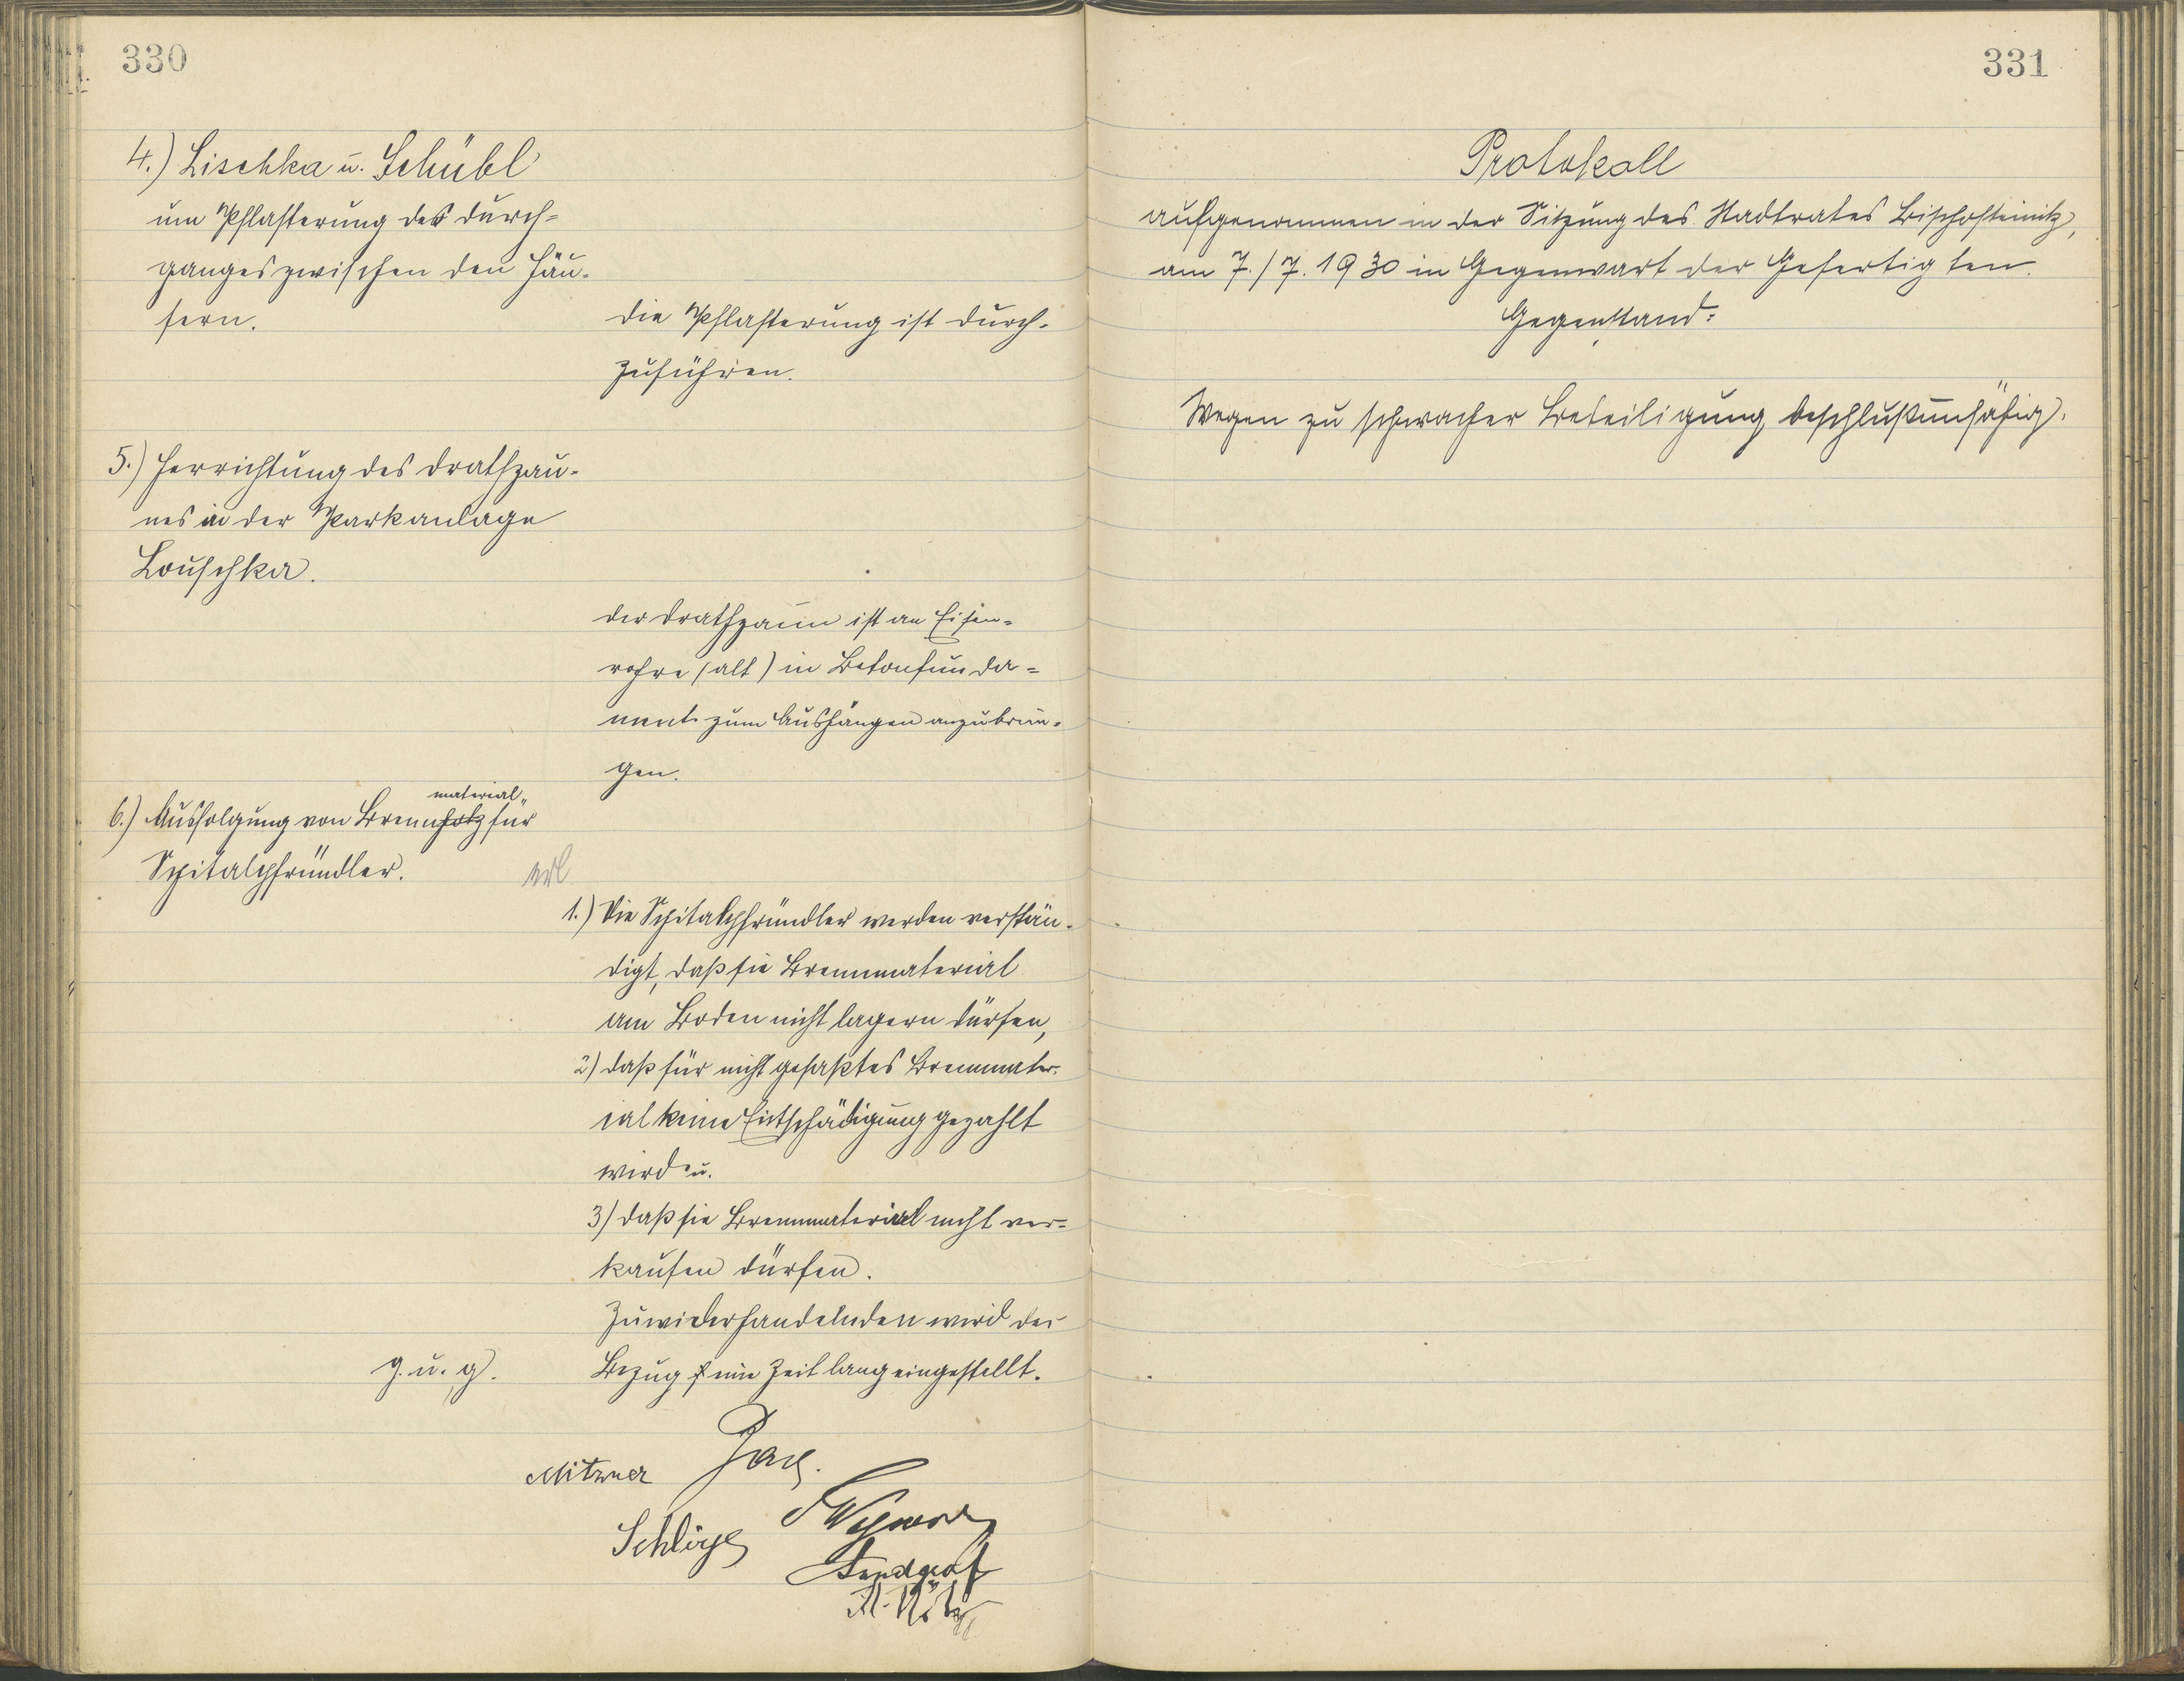 330
4.) Lischka u. Schübl
um Pflasterung des Durch-
ganges zwischen den Häu-
sern.
Die Pflasterung ist durch-
zuführen.
5.) Herrichtung des Drathzau-
nes in der Parkanlage
Louschka.
Der Drathzaun ist an Eisen-
rohre (alt) in Betonfunda-
ment zum Aushängen anzubrin-
gen.
material
6.) Ausfolgung von Brennholz für
Spitalpfründler.
erl
1.) Die Spitalpfründler werden verstän-
digt, daß sie Brennmaterial
am Boden nicht lagern dürfen,
2) daß für nicht gefaßtes Brennmater-
ial keine Entschädigung gezahlt
wird u.
3) daß sie Brennmaterial nicht ver-
kaufen dürfen.
Zuwiderhandelnden wird der
g. u. g. Bezug eine Zeit lang eingestellt.
Mitzner
Landgraf
331
Protokoll
aufgenommen in der Sitzung des Stadtrates Bischofteinitz,
am 7./7. 1930 in Gegenwart der Gefertigten.
Gegenstand:
Wegen zu schwacher Beteiligung beschlußunfähig.